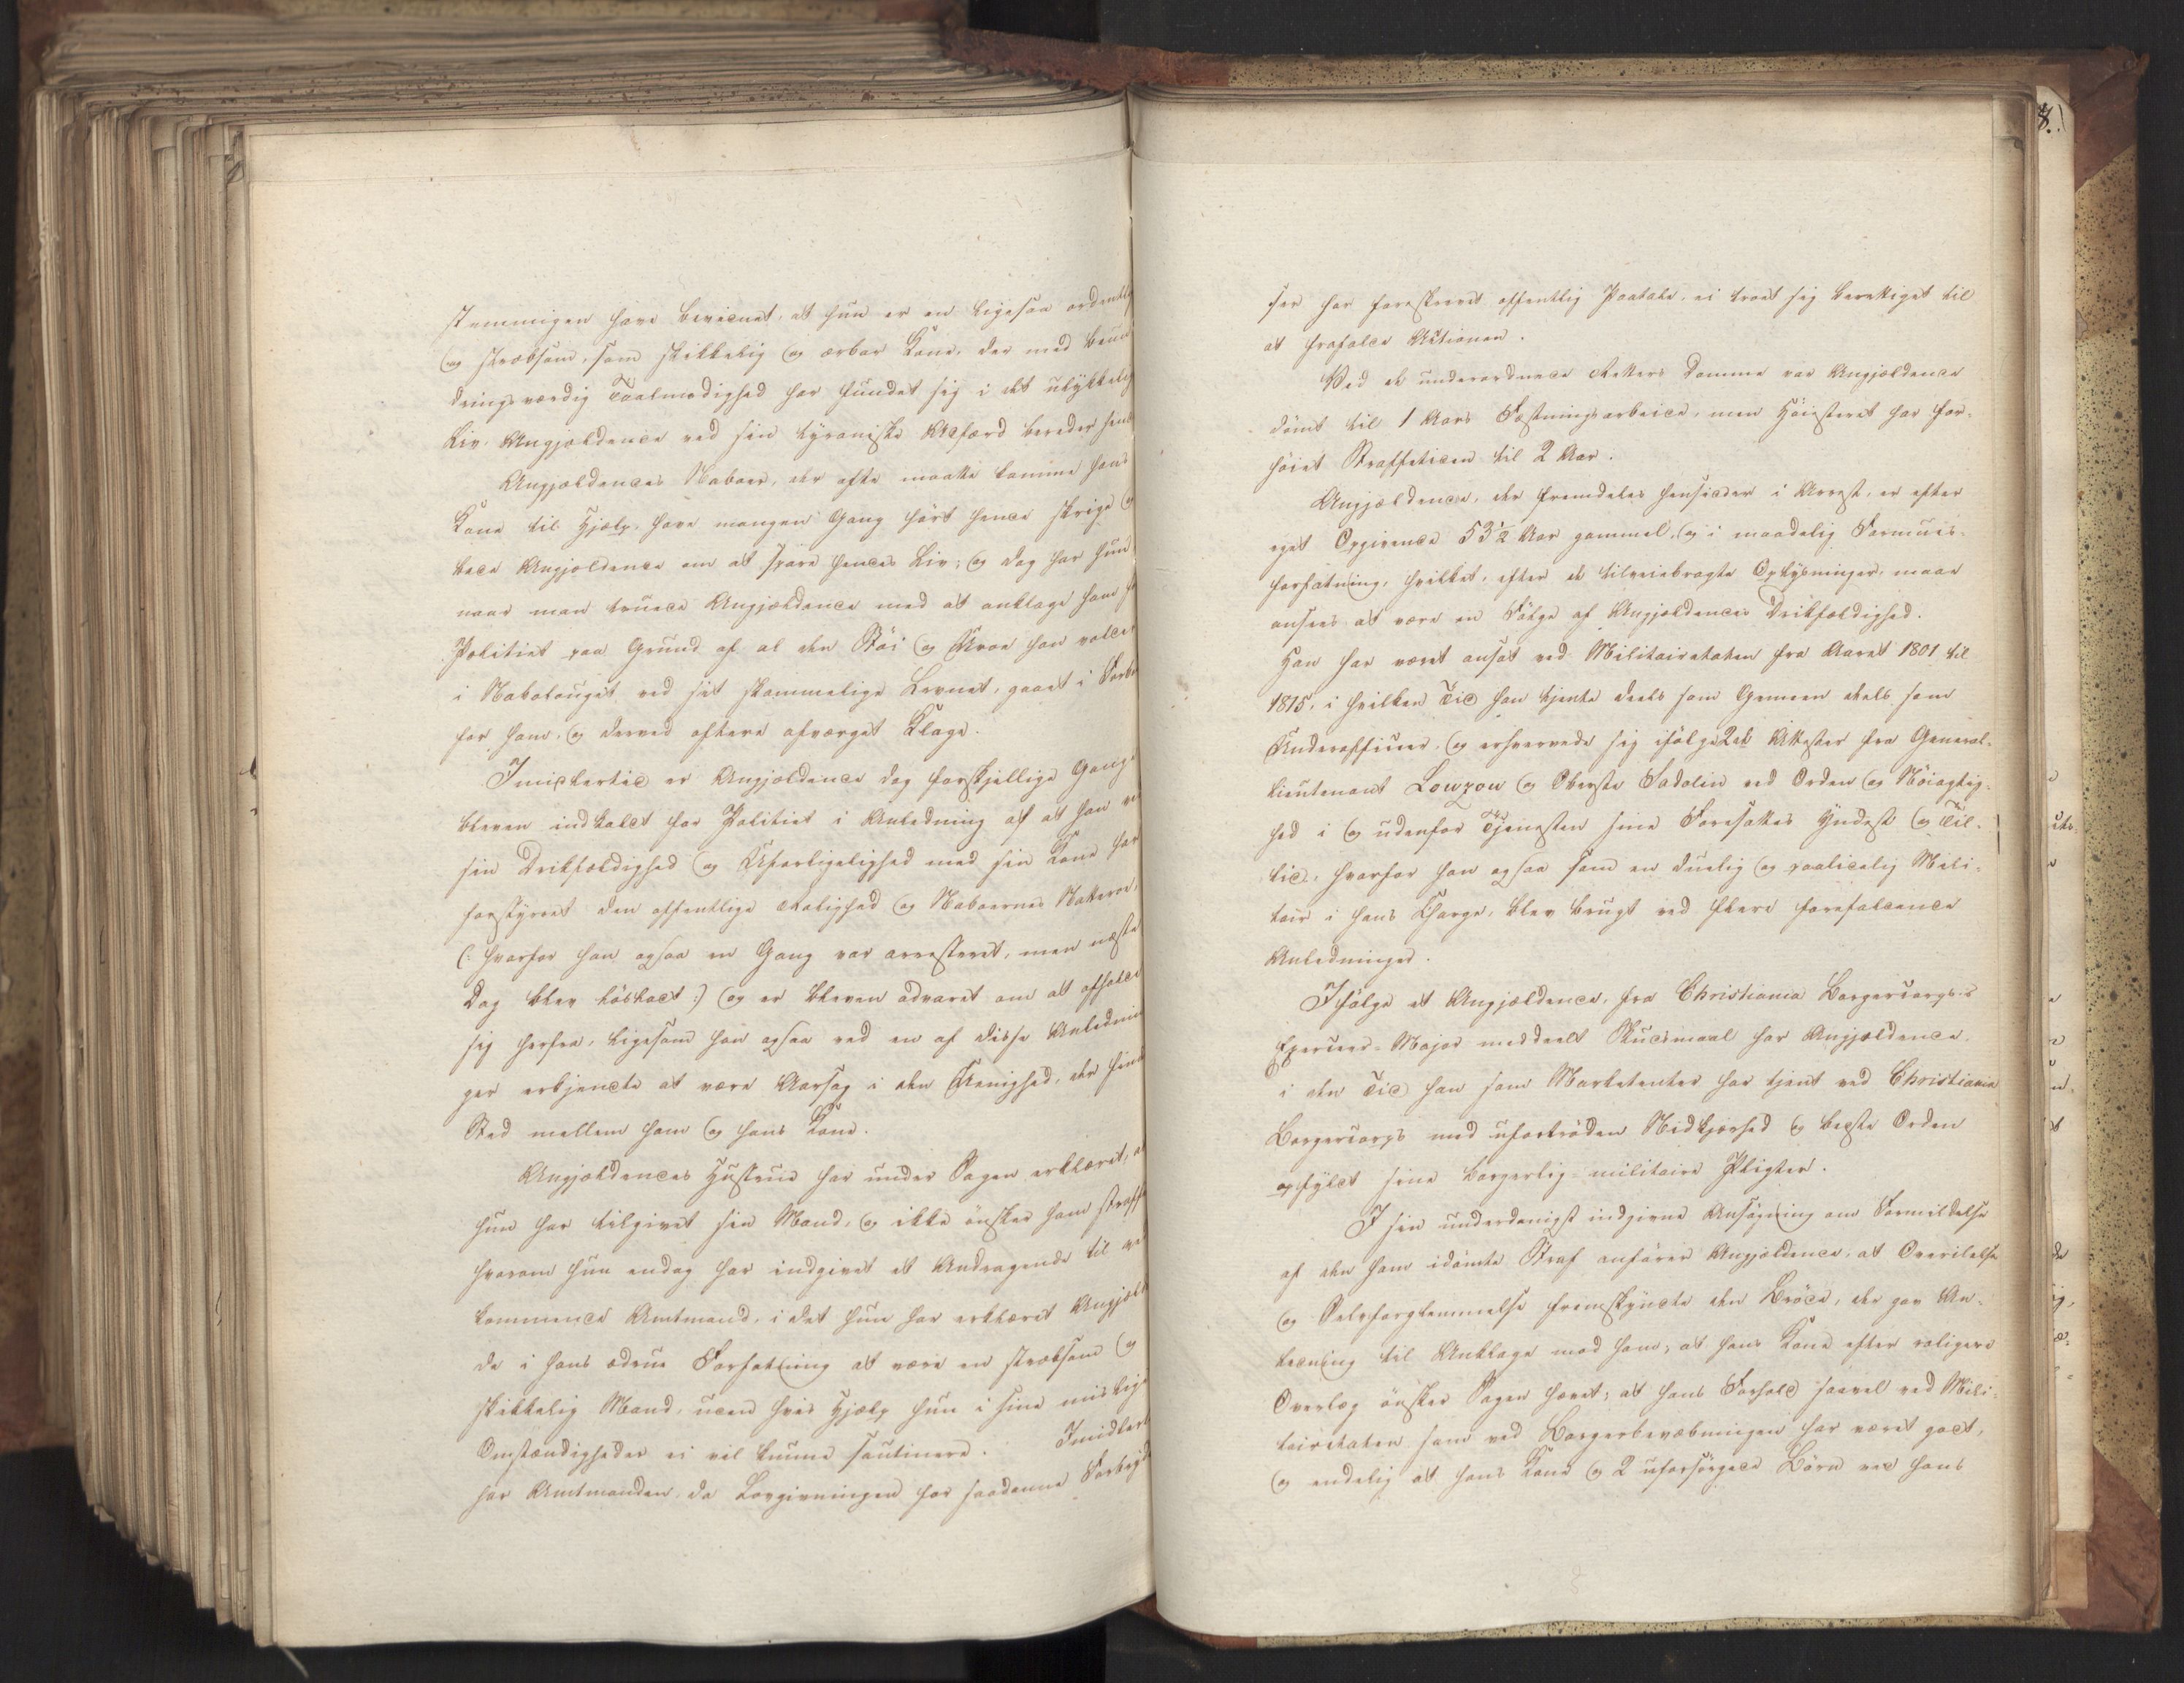 stemmigen have bevidnet, at hun er en ligesaa ordentlig
og stræbsom, som skikkelig og ærbar Kone, der med beun-
dringsværdig Taalmodighed har fundet sig i det ulykkelig
Liv Angjældende ved sin tyraniske Adfærd bereder hende
Angjældendes Naboer, der ofte maatte komme hans
Kone til Hjælp, have mangen Gang hört hende skrige og
bede Angjældende om at spare hendes Liv; og dog har hun
naar man truede Angjældende med at anklage ham for
Politiet paa Grund af al den Stöi og Uroe han voldet
i Nabolauget ved sit skammelige Levnet, gaaet i Forbön
for ham, og derved oftere afværget Klage.
Imidlertid er Angjældende dog forskjellige Gange
bleven indkaldt for Politiet i Anledning af at han ved
sin Drikfældighed og Uforligelighed med sin Kone har
forstyrret den offentlige Rolighed og Naboernes Natteroe,
(: hvorfor han ogsaa en Gang var arresteret, men næste
Dag blev lösladt :) og er bleven advaret om at afholde
sig herfra, ligesom han ogsaa ved en af disse Anlednin
ger erkjendte at være Aarsag i den Uenighed, der fandt
Sted mellem ham og hans Kone.
Angjældendes Hustrue har under Sagen erklæret, at
hun har tilgivet sin Mand, og ikke önsker ham straffet
hvorom hun endog har indgivet et Andragende til ved
kommende Amtmand, i det hun har erklæret Angjælden
de i hans ædrue Forfatning at være en stræbsom og
skikkelig Mand, uden hvis Hjælp hun i sine mislige
Omstændigheder ei vil kunne soutinere. Imidlert
har Amtmanden, da Lovgivningen for saadanne Forbryd
ser har foreskrevet offentlig Paatale, ei troet sig berettiget til
at frafalde Actionen.
Ved de underordnede Retters Domme var Angjældende
dömt til 1 Aars Fæstningsarbeide, men Höiesteret har for-
höiet Straffetiden til 2 Aar.
Angjældende, der fremdeles hensidder i Arrest, er efter
eget Opgivende 53 1/2 Aar gammel, og i maadelig Formues-
forfatning, hvilket, efter de tilveiebragte Oplysninger, maae
ansees at være en Fölge af Angjældendes Drikfældighed.
Han har været ansat ved Militairetaten fra Aaret 1801 til
1815, i hvilken Tid han tjente deels som Gemeen deels som
Underofficeer, og erhvervede sig ifölge 2de Attester fra General-
lieutenant Lowzow og Oberste Fadolin ved Orden og Nöiagtig-
hed i og udenfor Tjenesten sine Foresattes Yndest og Til-
lid, hvorfor han ogsaa som en duelig og paalidelig Mili-
tair i hans Charge, blev brugt ved flere forefaldende
Anledninger.
Ifölge et Angjældende, fra Christiania Borgercorpses
Exerceer-Major meddeelt Skudsmaal har Angjældende,
i den Tid han som Marketenter har tjent ved Christiania
Borgercorps med ufortröden Nidkjerhed og bedste Orden
opfyldt sine borgerlig-militaire Pligter.
I sin underdanigst indgivne Ansögning om Formildelse
af den ham idömte Straf anförer Angjældende, at Overilelse
og Selvforglemmelse fremskyndte den Bröde, der gav An-
ledning til Anklage mod ham; at hans Kone efter roligere
Overlæg önsker Sagen hævet; at hans Forhold saavel ved Mili-
tairetaten som ved Borgerbevæbningen har været godt,
og endelig at hans Kone og 2 uforsörgede Börn ved hans